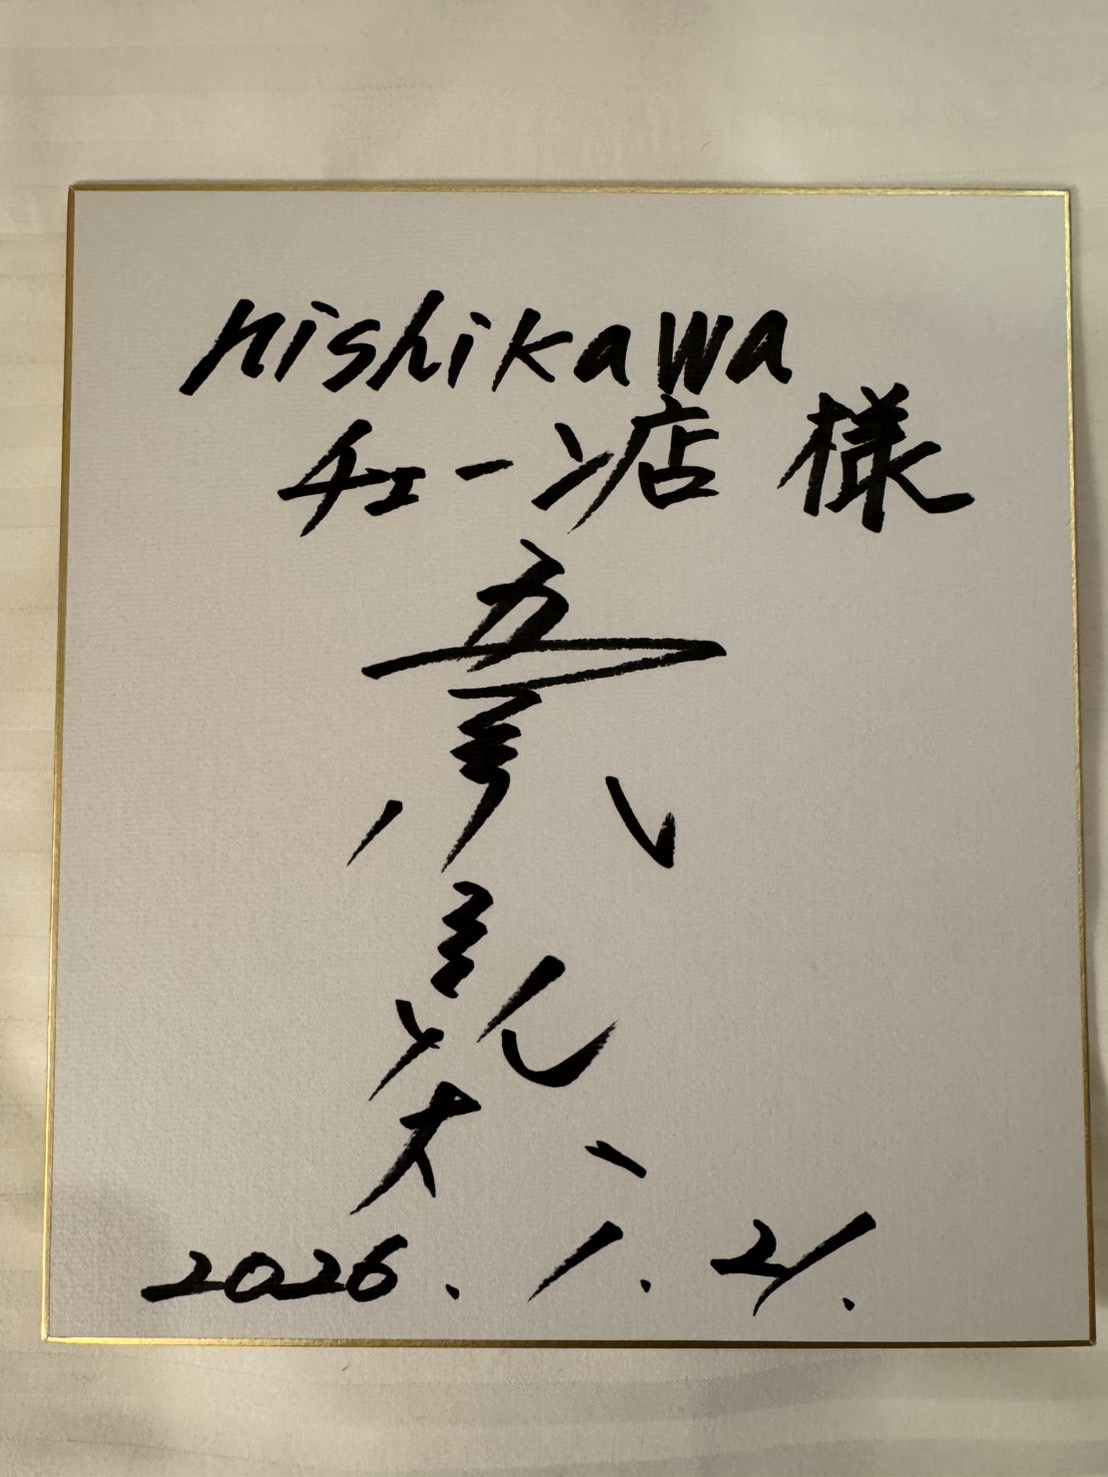 nishikawa
チェーン店 様
2026. 1. 21.